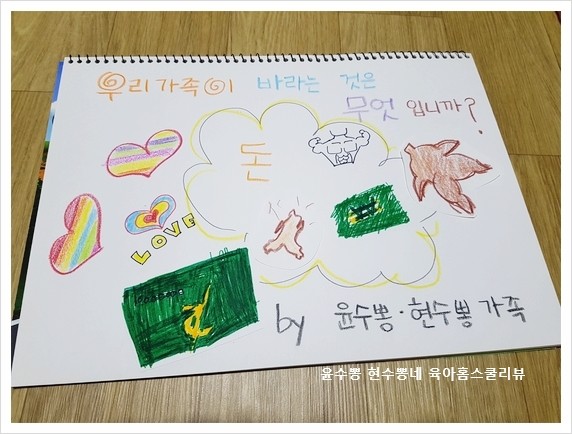 우리가족이 바라는 것은
무엇 입니까?
돈
LOVE
by 윤수뽕·현수뽕 가족
윤수뽕 현수뽕네 육아홈스쿨리뷰